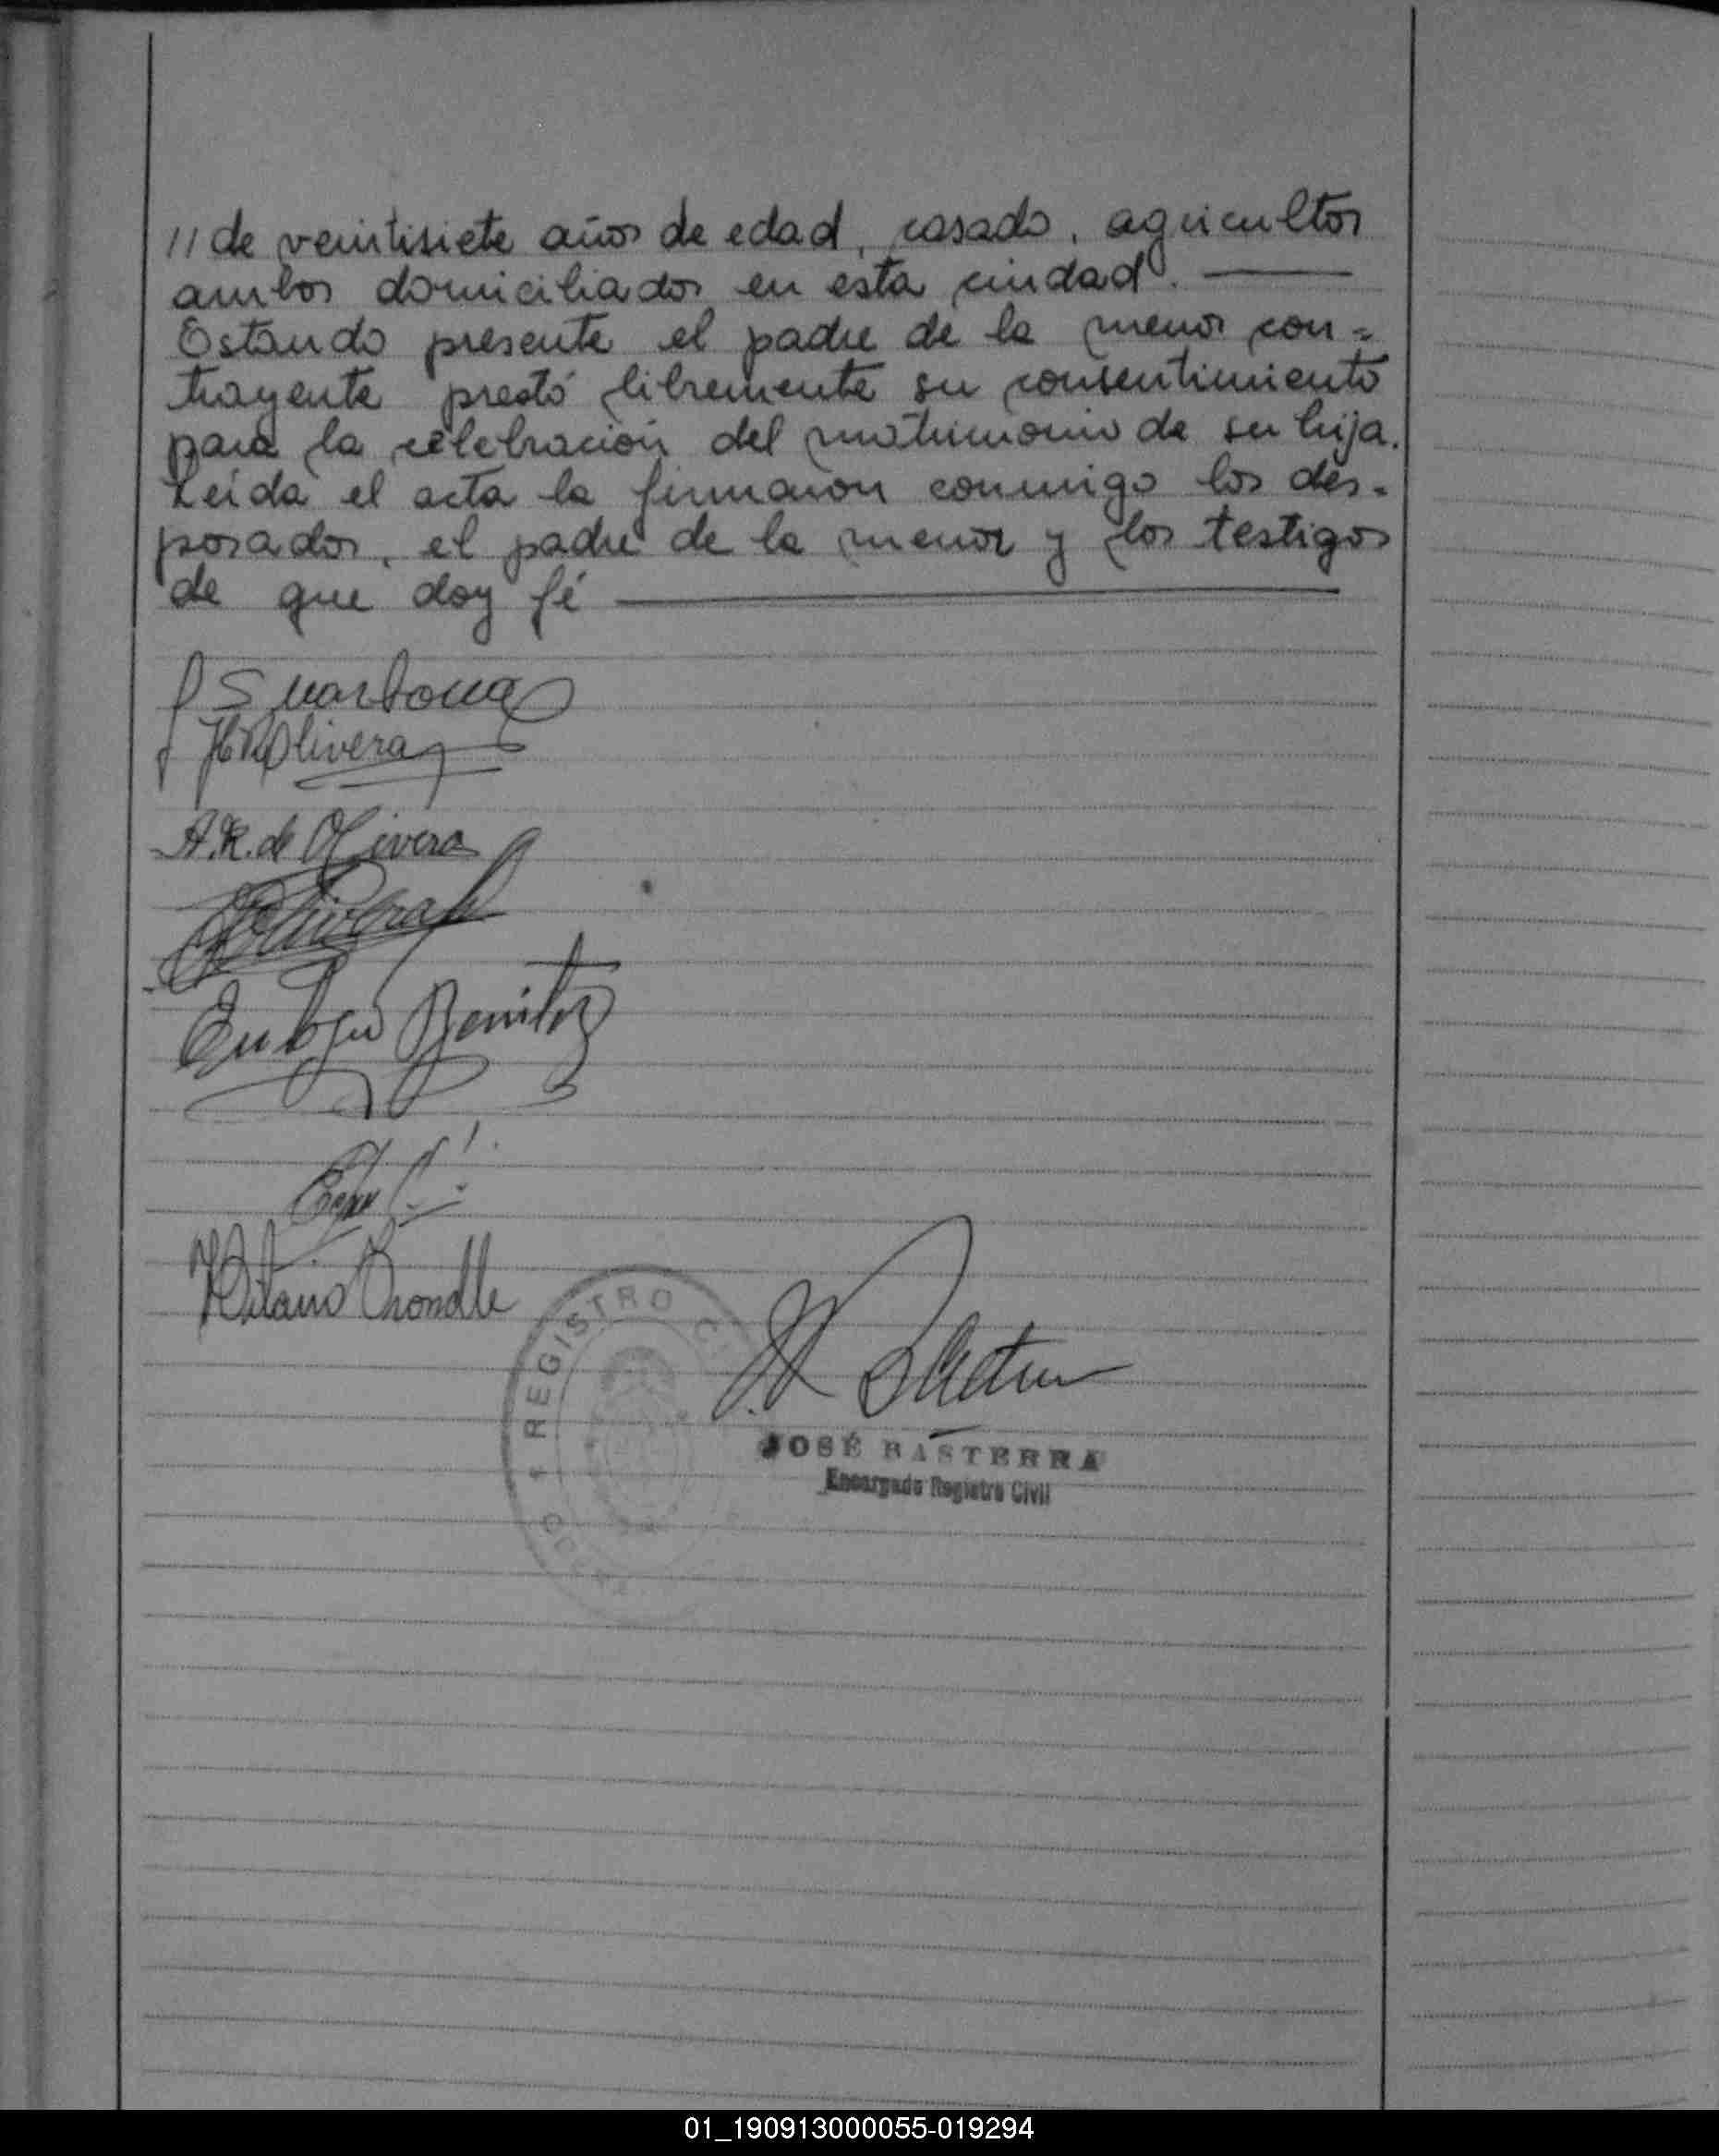 // de veintisiete años de edad, casado, agricultor
ambos domiciliados en esta ciudad.
Estando presente el padre de la menor con=
trayente prestó libremente su consentimiento
para la celebración del matrimonio de su hija.
Leída el acta la firmaron conmigo los des=
posados, el padre de la menor y los testigos
de que doy fé
Olivera
A.R. de Olivera
Olivera
Eulogio Benitez
Hilario
REGISTRO
JOSÉ BASTERRA
Encargado Registro Civil
01_190913000055-019294